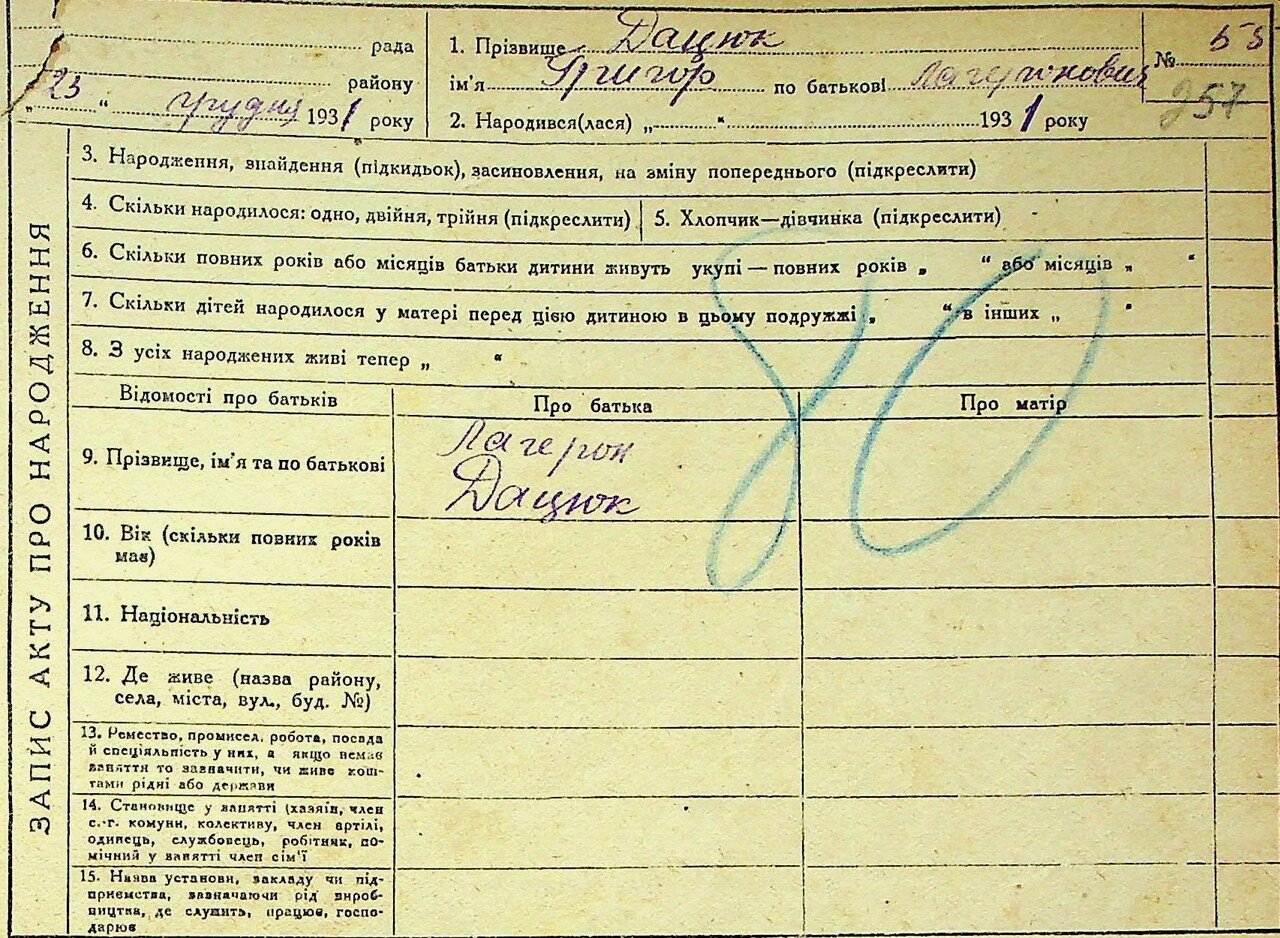 рада
району
„23“ грудня 1931 року
1. Прізвище Дацюк
ім'я Григор по батькові Лагеронович
2. Народився(лася) „ “ 1931 року
№ 55
257
ЗАПИС АКТУ ПРО НАРОДЖЕННЯ
3. Народження, знайдення (підкидьок), засиновлення, на зміну попереднього (підкреслити)
4. Скільки народилося: одно, двійня, трійня (підкреслити) 5. Хлопчик—дівчинка (підкреслити)
6. Скільки повних років або місяців батьки дитини живуть укупі — повних років „ “ або місяців „ “
7. Скільки дітей народилося у матері перед цією дитиною в цьому подружжі „ “ в інших „ “
8. З усіх народжених живі тепер „ “
80
Відомості про батьків Про батька Про матір
9. Прізвище, ім'я та по батькові
Лагерон
Дацюк
10. Вік (скільки повних років
має)
11. Національність
12. Де живе (назва району,
села, міста, вул., буд. №)
13. Ремество, промисел, робота, посада
й спеціяльність у них, а якщо немає
заняття то зазначити, чи живе кош-
тами рідні або держави
14. Становище у занятті (хазяїн, член
с.-г. комуни, колективу, член артілі,
одинець, службовець, робітник, по-
мічний у занятті член сім'ї
15. Назва установи, закладу чи під-
приємства, зазначаючи рід вироб-
ництва, де служить, працює, госпо-
дарює